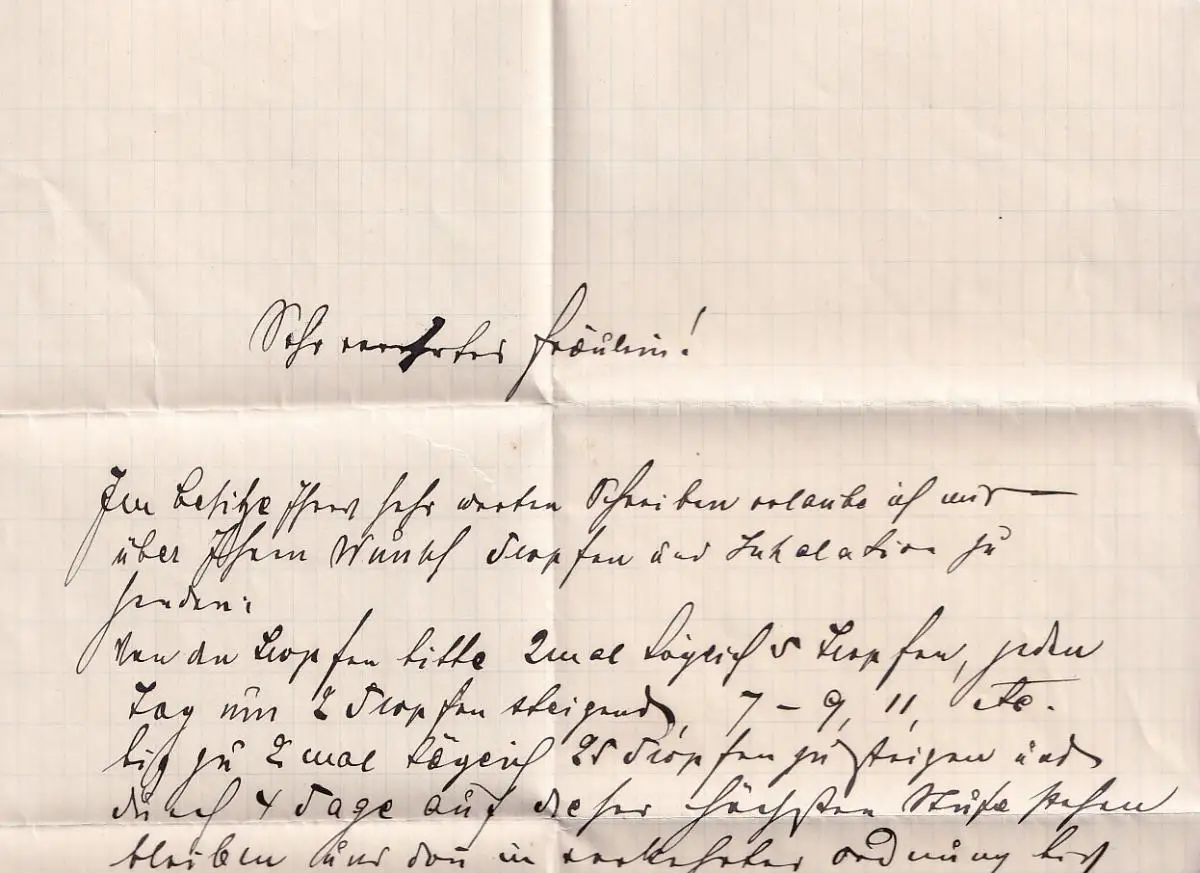 Sehr verehrtes Fräulein!
Im Besitze Ihres sehr werten Schreiben erlaube ich mir
über Ihren Wunsch Tropfen und Inhalation zu
senden:
Von den Tropfen bitte 2mal täglich 5 Tropfen, jeden
Tag um 2 Tropfen steigend, 7 – 9, 11, etc.
bis zu 2mal täglich 25 Tropfen zu steigen und
durch 4 Tage auf dieser höchsten Stufe stehen
bleiben und dan in verkehrter Ordnung bis